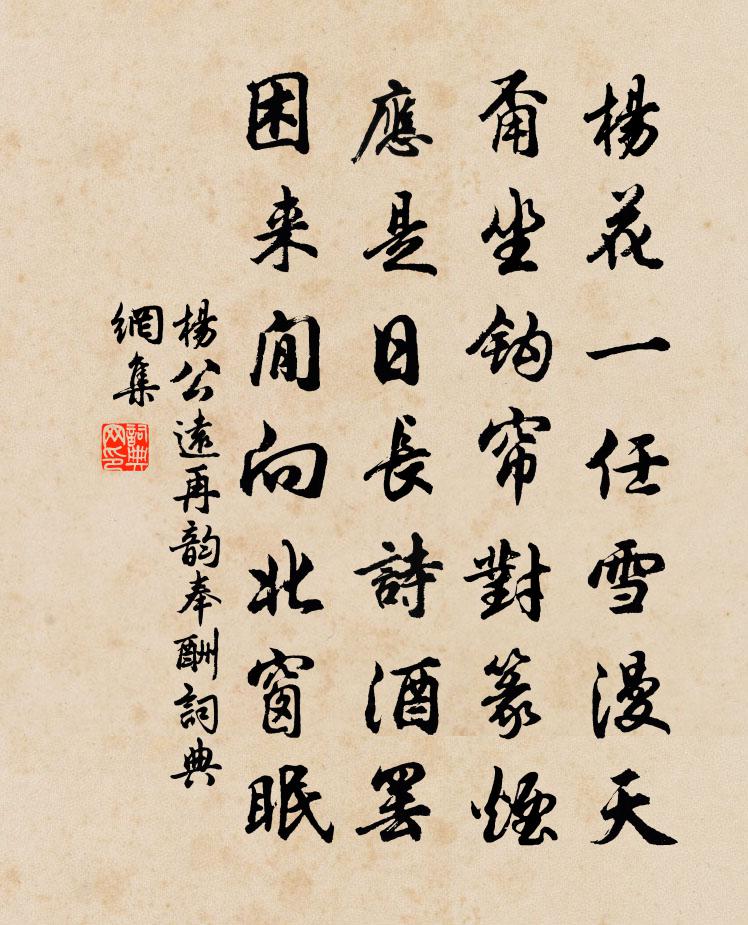 楊花一任雪漫天
甭坐鈎帘對篆煙
應是日長詩酒罷
困来閒向北窗眠
楊公遠再韵奉酬詞典
網集
詞典
网印